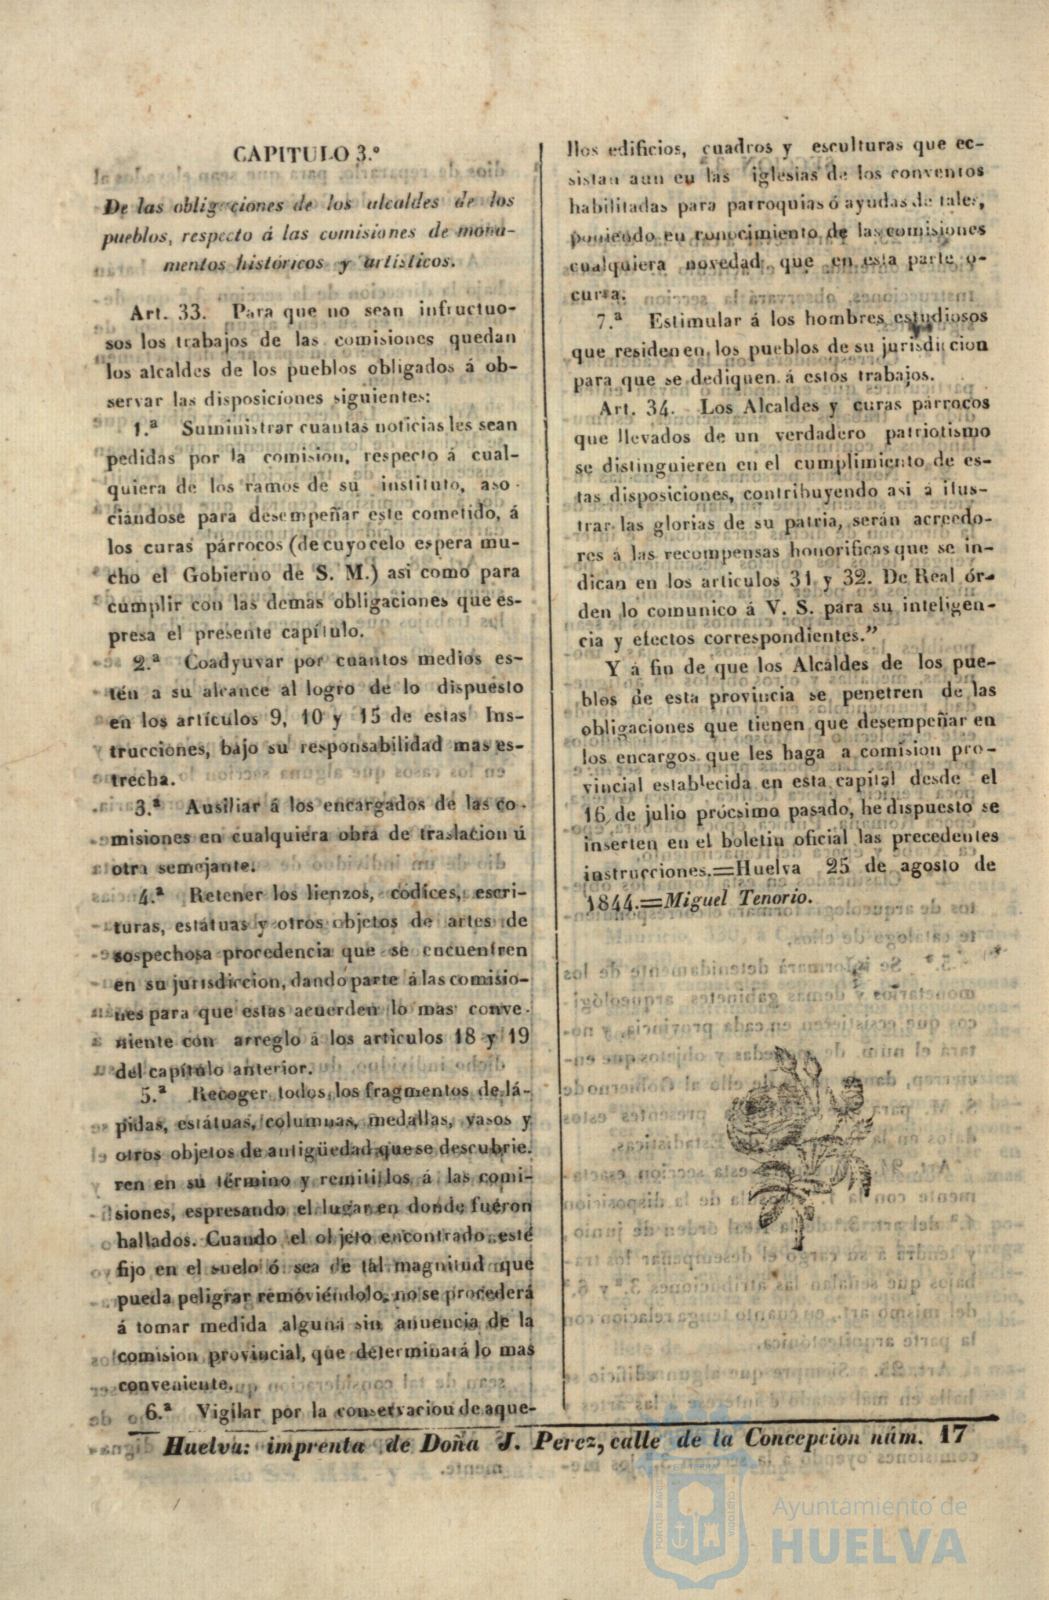 CAPITULO 3.º
De las obligaciones de los alcaldes de los
pueblos, respecto á las comisiones de monu-
mentos históricos y artísticos.
Art. 33. Para que no sean infructuo-
sos los trabajos de las comisiones quedan
los alcaldes de los pueblos obligados á ob-
servar las disposiciones siguientes:
1.ª Suministrar cuantas noticias les sean
pedidas por la comision, respecto á cual-
quiera de los ramos de su instituto, aso-
ciándose para desempeñar este cometido, á
los curas párrocos (de cuyo celo espera mu-
cho el Gobierno de S. M.) asi como para
cumplir con las demas obligaciones que es-
presa el presente capítulo.
2.ª Coadyuvar por cuantos medios es-
tén a su alcance al logro de lo dispuesto
en los artículos 9, 10 y 15 de estas Ins-
trucciones, bajo su responsabilidad mas es-
trecha.
3.ª Ausiliar á los encargados de las co-
misiones en cualquiera obra de traslacion ú
otra semejante.
4.ª Retener los lienzos, códices, escri-
turas, estátuas y otros objetos de artes de
sospechosa procedencia que se encuentren
en su jurisdiccion, dando parte á las comisio-
nes para que estas acuerden lo mas conve-
niente con arreglo á los articulos 18 y 19
del capítulo anterior.
5.ª Recoger todos los fragmentos de lá-
pidas, estátuas, columnas, medallas, vasos y
otros objetos de antigüedad que se descubrie-
ren en su término y remitirlos á las comi-
siones, espresando el lugar en donde fueron
hallados. Cuando el objeto encontrado esté
fijo en el suelo ó sea de tal magnitud que
pueda peligrar removiéndolo, no se procederá
á tomar medida alguna sin anuencia de la
comision provincial, que determinará lo mas
conveniente.
6.ª Vigilar por la conservacion de aque-
llos edificios, cuadros y esculturas que ec-
sistan aun en las iglesias de los conventos
habilitadas para parroquias ó ayudas de tales,
poniendo en conocimiento de las comisiones
cualquiera novedad que en esta parte o-
curra.
7.ª Estimular á los hombres estudiosos
que residen en los pueblos de su jurisdiccion
para que se dediquen á estos trabajos.
Art. 34. Los Alcaldes y curas párrocos
que llevados de un verdadero patriotismo
se distinguieren en el cumplimiento de es-
tas disposiciones, contribuyendo asi á ilus-
trar las glorias de su patria, serán acreedo-
res á las recompensas honorificas que se in-
dican en los articulos 31 y 32. De Real ór-
den lo comunico á V. S. para su inteligen-
cia y efectos correspondientes.”
Y á fin de que los Alcaldes de los pue-
blos de esta provincia se penetren de las
obligaciones que tienen que desempeñar en
los encargos que les haga a comision pro-
vincial establecida en esta capital desde el
16 de julio prócsimo pasado, he dispuesto se
inserten en el boletin oficial las precedentes
instrucciones.=Huelva 25 de agosto de
1844.=Miguel Tenorio.
Huelva: imprenta de Doña J. Perez, calle de la Concepcion núm. 17
PORTUS MARIS CUSTODIA
Ayuntamiento de
HUELVA